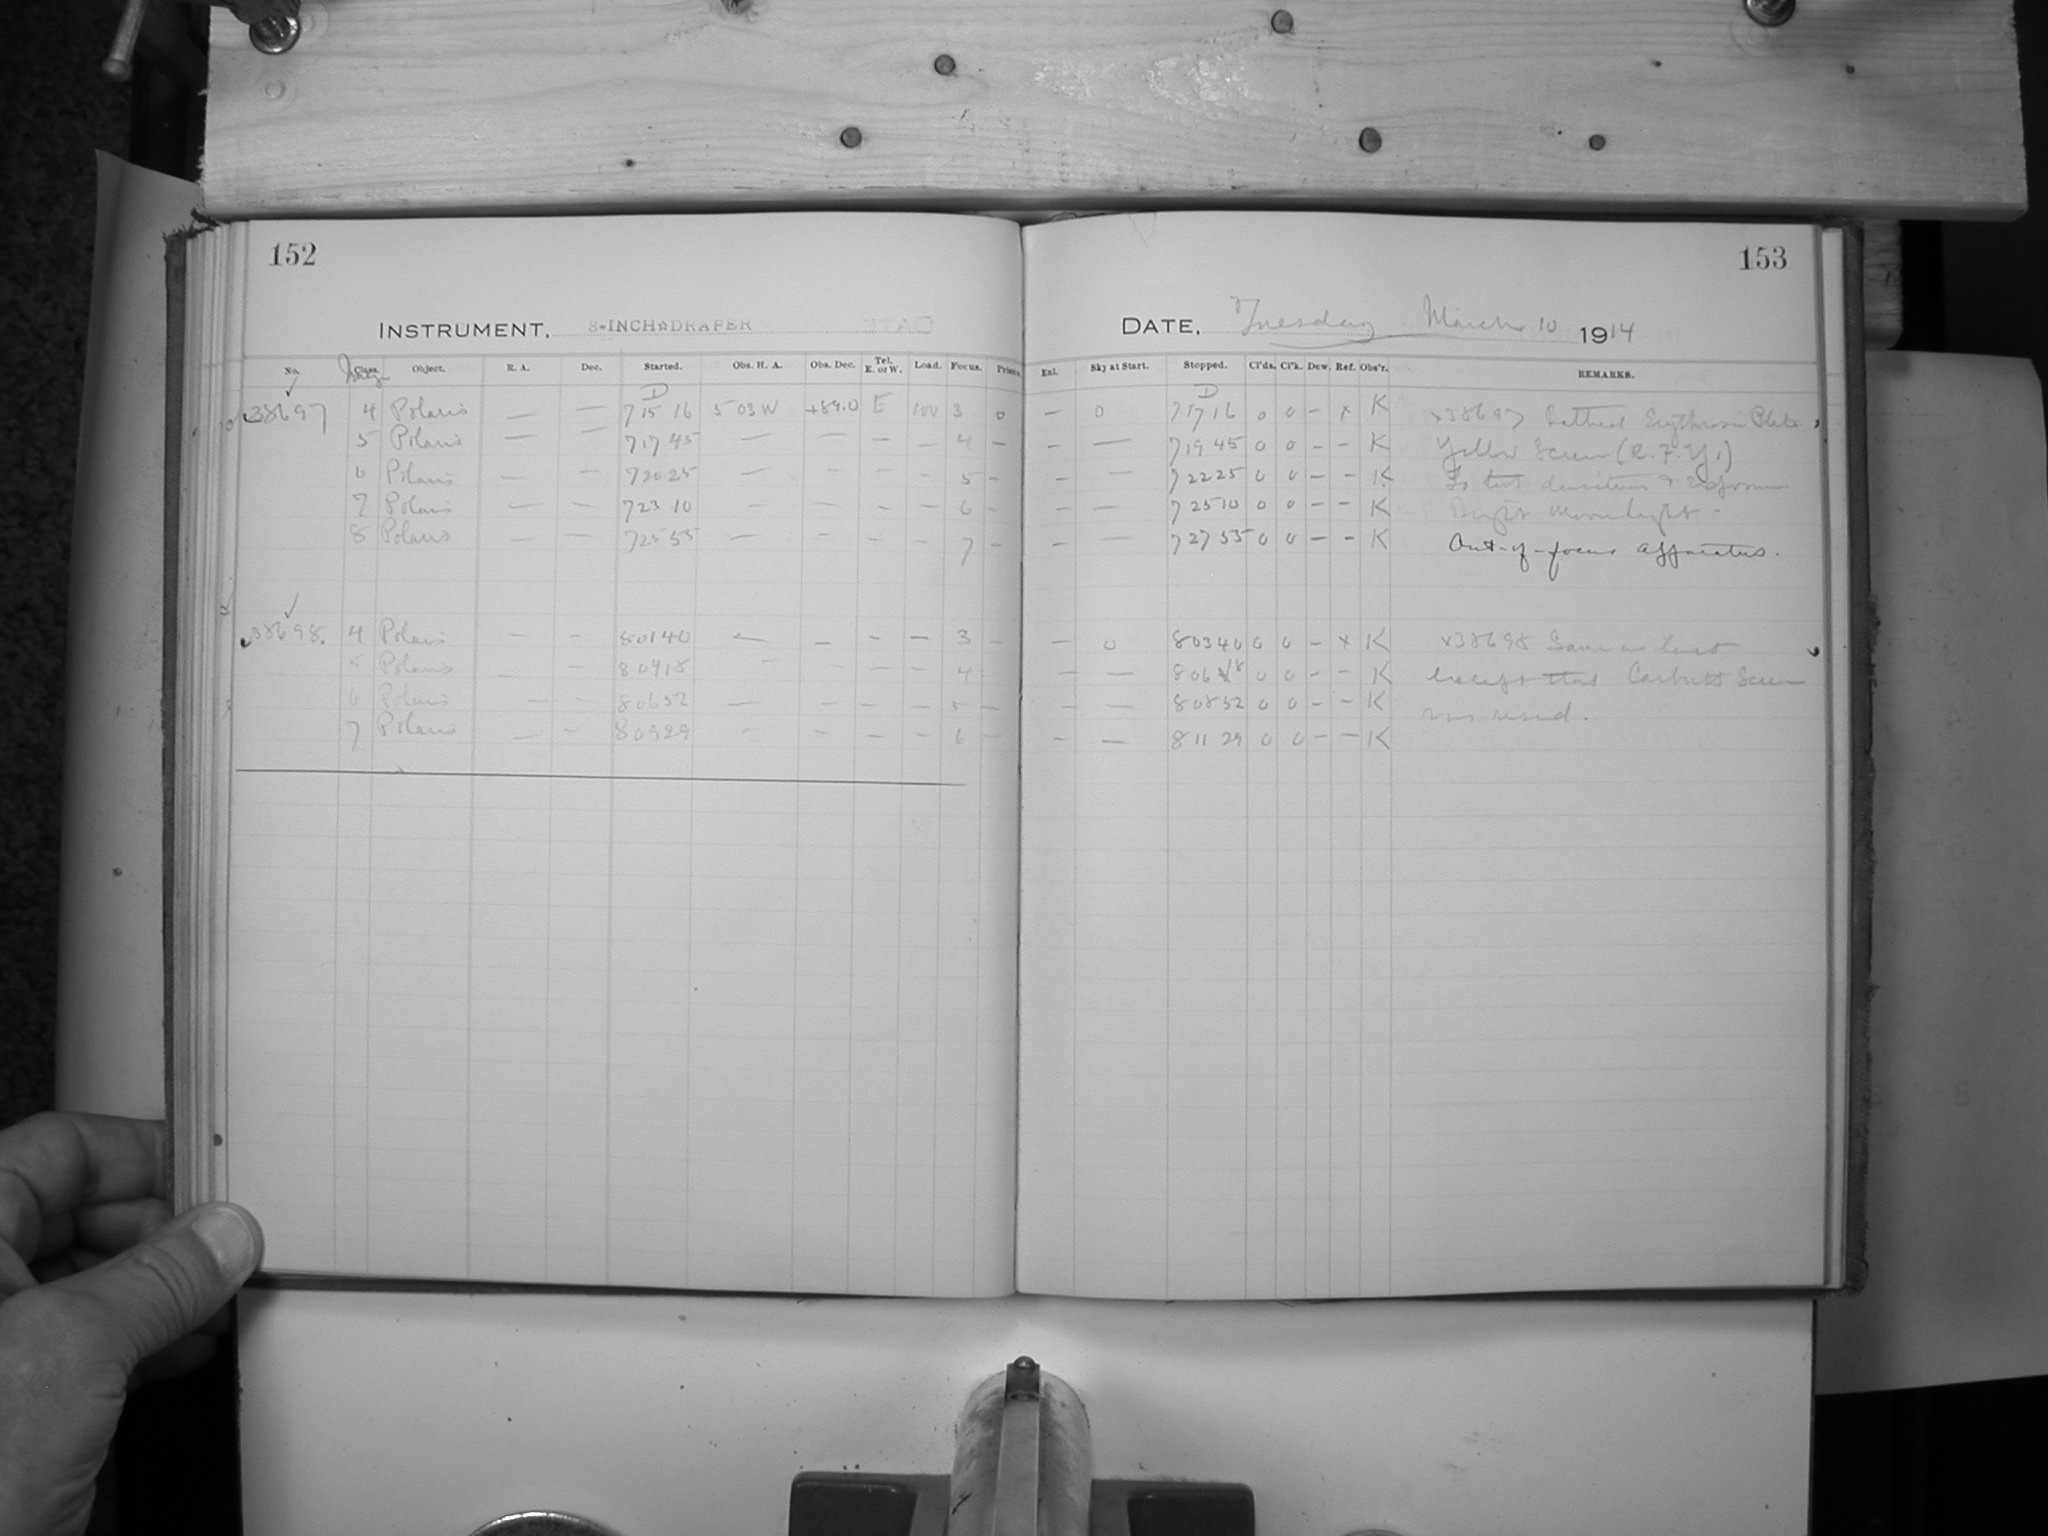 152
INSTRUMENT, 8-INCH DRAPER
No. Class. Object. R. A. Dec. Started. Obs. H. A. Obs. Dec. Tel. E. or W. Load. Focus. Prism.
D
38697 4 Polaris — — 7 15 16 5 03 W +89.0 E 100 3 0
5 Polaris — — 7 17 45 — — — — 4 —
6 Polaris — — 7 20 25 — — — — 5 —
7 Polaris — — 7 23 10 — — — — 6 —
8 Polaris — — 7 25 55 — — — — 7 —
38698. 4 Polaris — — 8 01 40 — — — — 3 —
5 Polaris — 8 04 18 — — — — 4
6 Polaris — — 8 06 52 — — — — 5 —
7 Polaris — — 8 09 29 — — — — 6 —
153
DATE, Tuesday March 10 1914
Enl. Sky at Start. Stopped. Cl'ds. Cl'k. Dew. Ref. Obs'r. REMARKS.
D
— 0 7 17 16 0 0 — x K x38697 Bathed Erythrosin Plate
— — 7 19 45 0 0 — — K Yellow Screen (R.F.Y.)
— — 7 22 25 0 0 — — K To test
— — 7 25 10 0 0 — — K Bright Moonlight.
— — 7 27 55 0 0 — — K Out-of-focus apparatus.
— 0 8 03 40 0 0 — x K x38698 Same as last
— — 8 06 18 0 0 — — K except that Carbutt Screen
— — 8 08 52 0 0 — — K was used.
— — 8 11 29 0 0 — — K